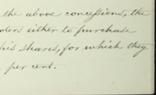 the above concessions, the
ders either to purchase
his shares, for which they
per cent.